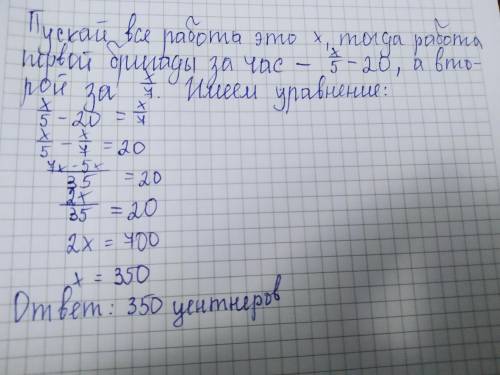 Пускай все работа это x, тогда работа
первой бригады за час – x/5 - 20, а вто-
рой за x/7. Имеем уравнение:
x/5 - 20 = x/7
x/5 - x/7 = 20
7x - 5x/35 = 20
2x/35 = 20
2x = 700
x = 350
Ответ: 350 центнеров